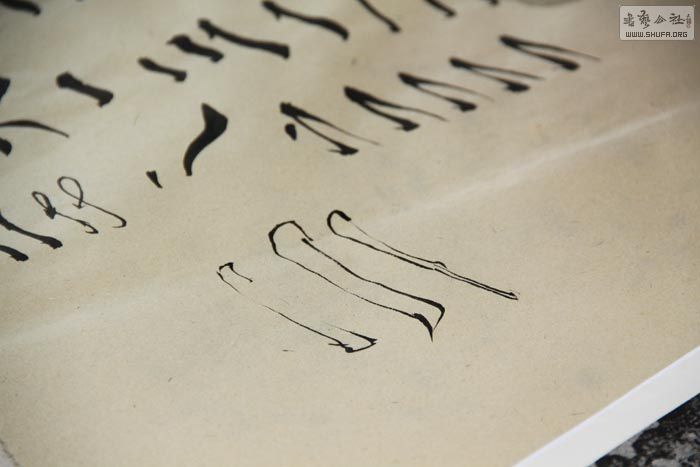 書藝公社
WWW.SHUFA.ORG